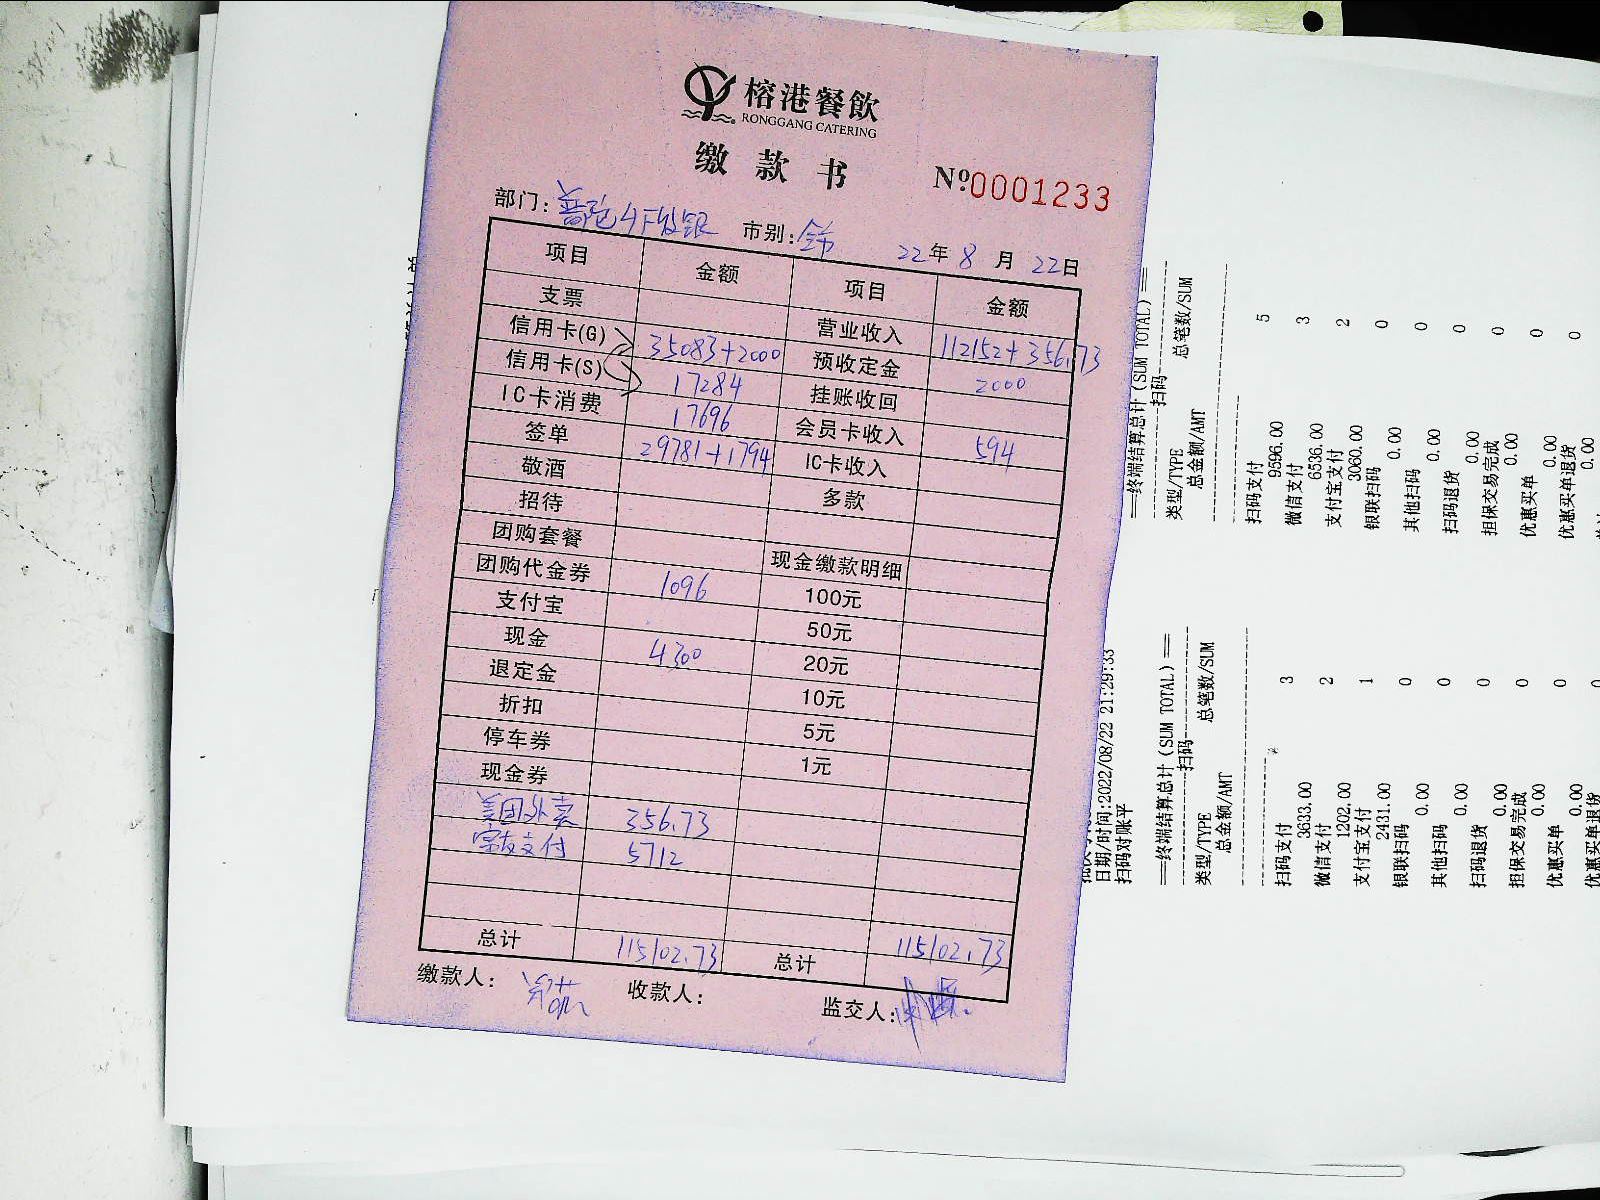 榕港餐飲
RONGGANG CATERING
缴款书
Nº0001233
部门: 普陀 市别: 全市 22年8月22日
项目 金额 项目 金额
支票 营业收入 112152+356.73
信用卡(G) 35083+2000 预收定金 2000
信用卡(S) 17284 挂账收回
IC卡消费 17696 会员卡收入 594
签单 29781+1794 IC卡收入
敬酒 多款
招待
团购套餐 现金缴款明细
团购代金券 1096 100元
支付宝 50元
现金 4300 20元
退定金 10元
折扣 5元
停车券 1元
现金券
美团外卖 356.73
支付 5712
总计 115102.73 总计 115102.73
缴款人: 收款人: 监交人:
==终端结算总计(SUM TOTAL)==
扫码
类型/TYPE 总笔数/SUM
总金额/AMT
扫码支付 5
9596.00
微信支付 3
6536.00
支付宝支付 2
3060.00
银联扫码 0
0.00
其他扫码 0
0.00
扫码退货 0
0.00
担保交易完成 0
0.00
优惠买单 0
0.00
优惠买单退货 0
0.00
日期/时间:2022/08/22 21:29:33
扫码对账平
==终端结算总计(SUM TOTAL)==
扫码
类型/TYPE 总笔数/SUM
总金额/AMT
扫码支付 3
3633.00
微信支付 2
1202.00
支付宝支付 1
2431.00
银联扫码 0
0.00
其他扫码 0
0.00
扫码退货 0
0.00
担保交易完成 0
0.00
优惠买单 0
0.00
优惠买单退货 0